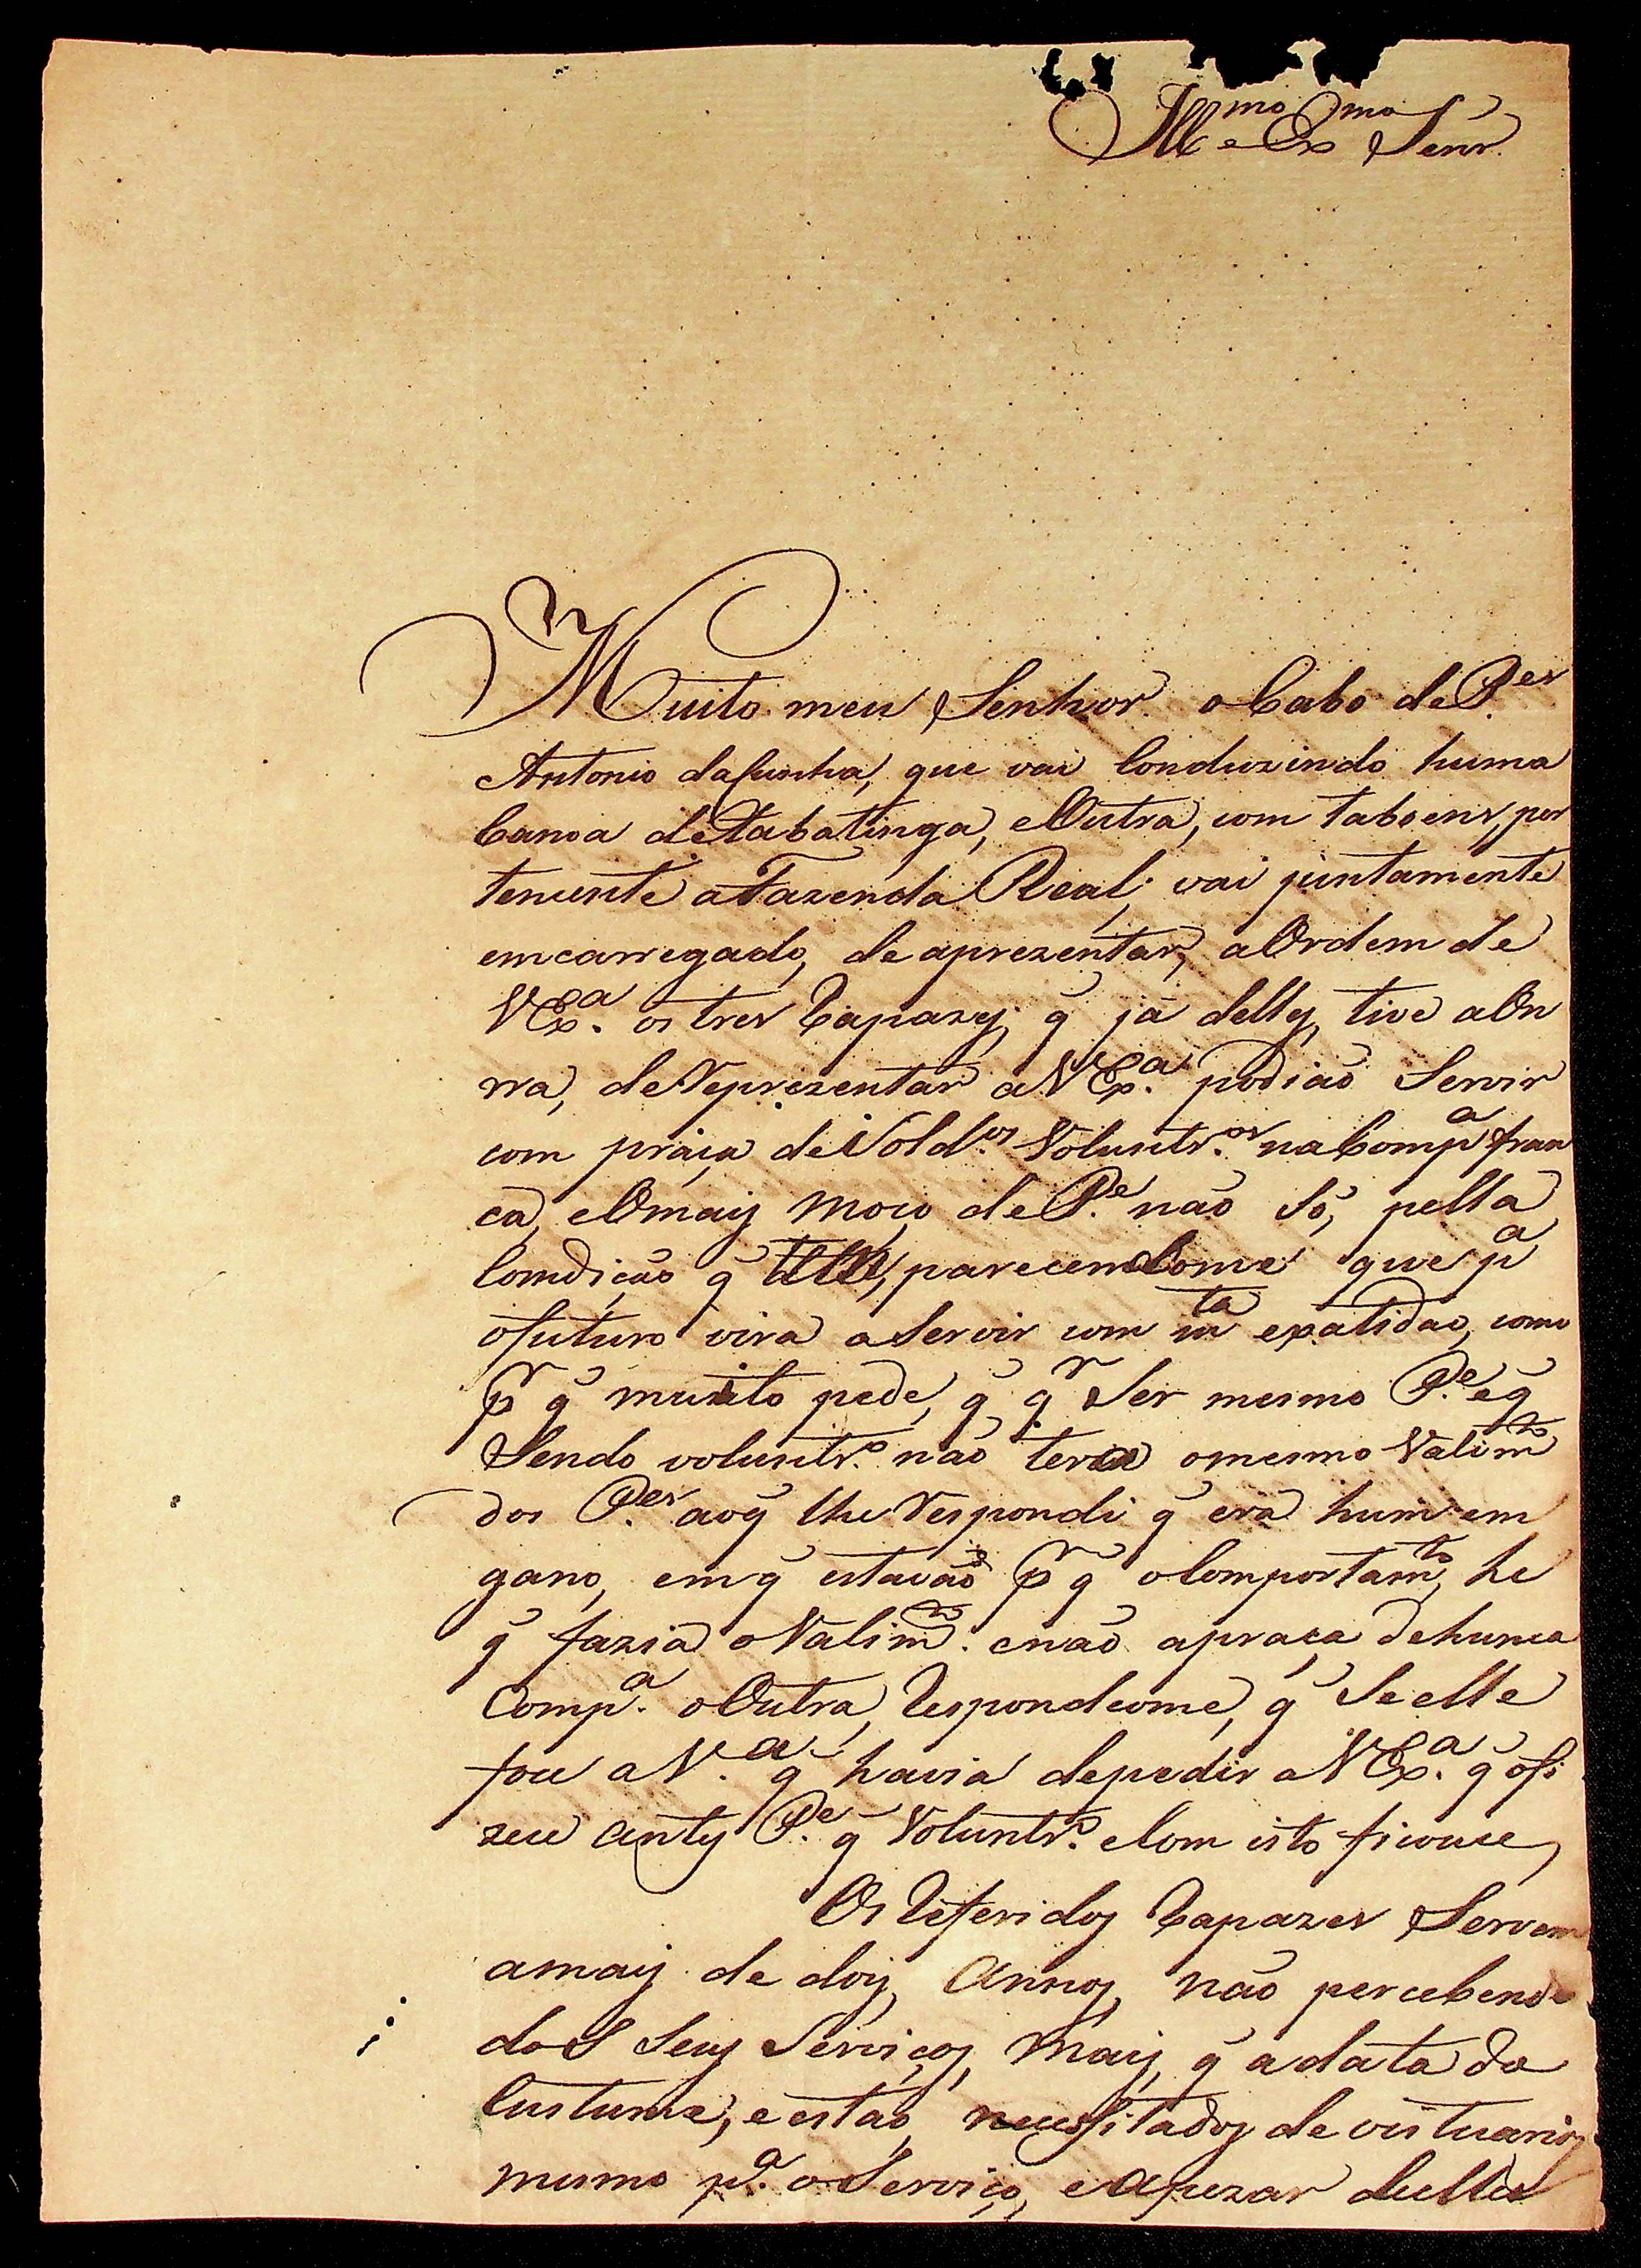 Ill.mo e Ex.mo Senr.
Muito meu Senhor. o Cabo de P.es
Antonio da Cunha, que vai Conduzindo huma
Canoa de Tabatinga, e Outra, com taboens, per
tencente a Fazenda Real; vai juntamente
emcarregado, de aprezentar, a Ordem de
V Ex.a os tres Rapazes, q̃ já delles, tive a On
rra, de Reprezentar a V Ex.a podiaõ Servir
com praça de Sold.os Voluntr.os na Comp.a fran
ca, e O mais moço de P.e naõ Só, pella
Comdiçaõ q̃ parecendome que p.a
o futuro virá a Servir com m.ta exatidaõ, como
p.r q̃ muito pede, q̃ q.r Ser mesmo P.e e q̃
Sendo voluntr.o naõ terá o mesmo Valim.to
dos P.es ao q̃ lhe Respondi q̃ era hum em
gano, em q̃ estavaõ p.r q̃ o Comportam.to, he
q̃ fazia o Valim.to e naõ a praça de huma
Comp.a o Outra, Respondeome, q̃ Se elle
fose a V.a q̃ havia de pedir a V Ex.a q̃ o fi
zese antes P.e q̃ Voluntr.o e Com isto ficouse,
Os Referidos Rapazes Servem
a mais de dois Annos, naõ percebendo
dos Seus Serviços, mais, q̃ a data do
Custume, e estaõ, necessitados de vistuarios,
mesmo p.a o Serviço, e Apezar delles